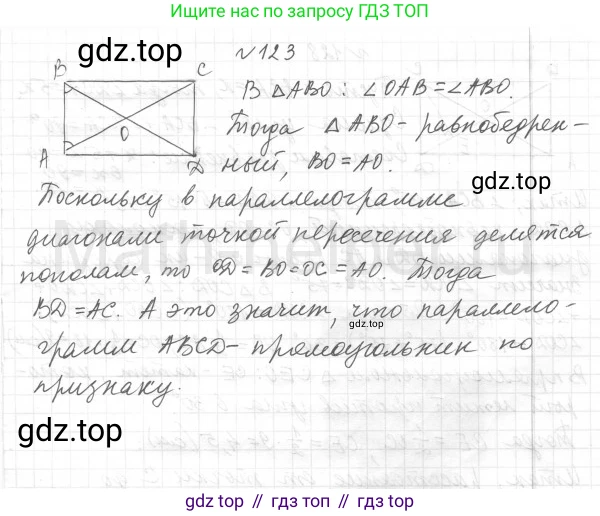 Ищите нас по запросу ГДЗ ТОП
gdz.top
№123
B C
O
A D
В △ABO: ∠OAB=∠ABO.
Тогда △ABO- равнобедрен-
ный, BO=AO.
gdz.top
Поскольку в параллелограмме
диагонали точкой пересечения делятся
пополам, то OD=BO=OC=AO. Тогда
BD=AC. А это значит, что параллело-
gdz.top
грамм ABCD- прямоугольник по
признаку.
gdz.top
gdz.top // гдз топ // gdz top